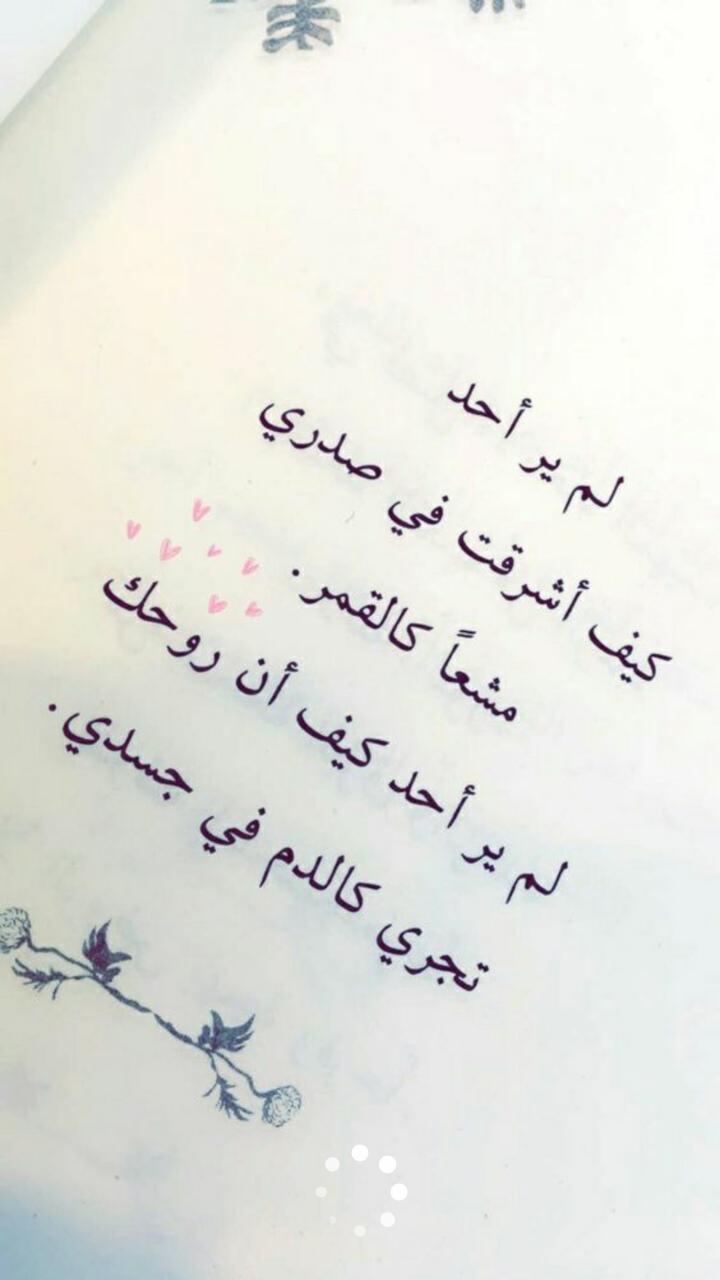 لم ير أحد
كيف أشرقت في صدري
مشعاً كالقمر .
لم ير أحد كيف أن روحك
تجري كالدم في جسدي .